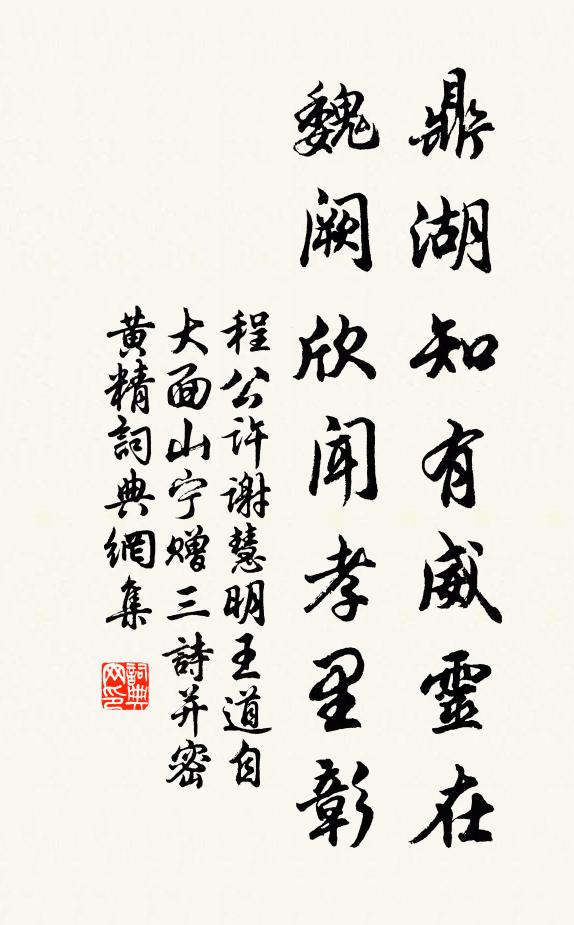 鼎湖知有威靈在
魏阙欣闻孝里彰
程公许谢慧明王道自
大面山宁赠三詩并密
黄精詞典網集
詞典网印